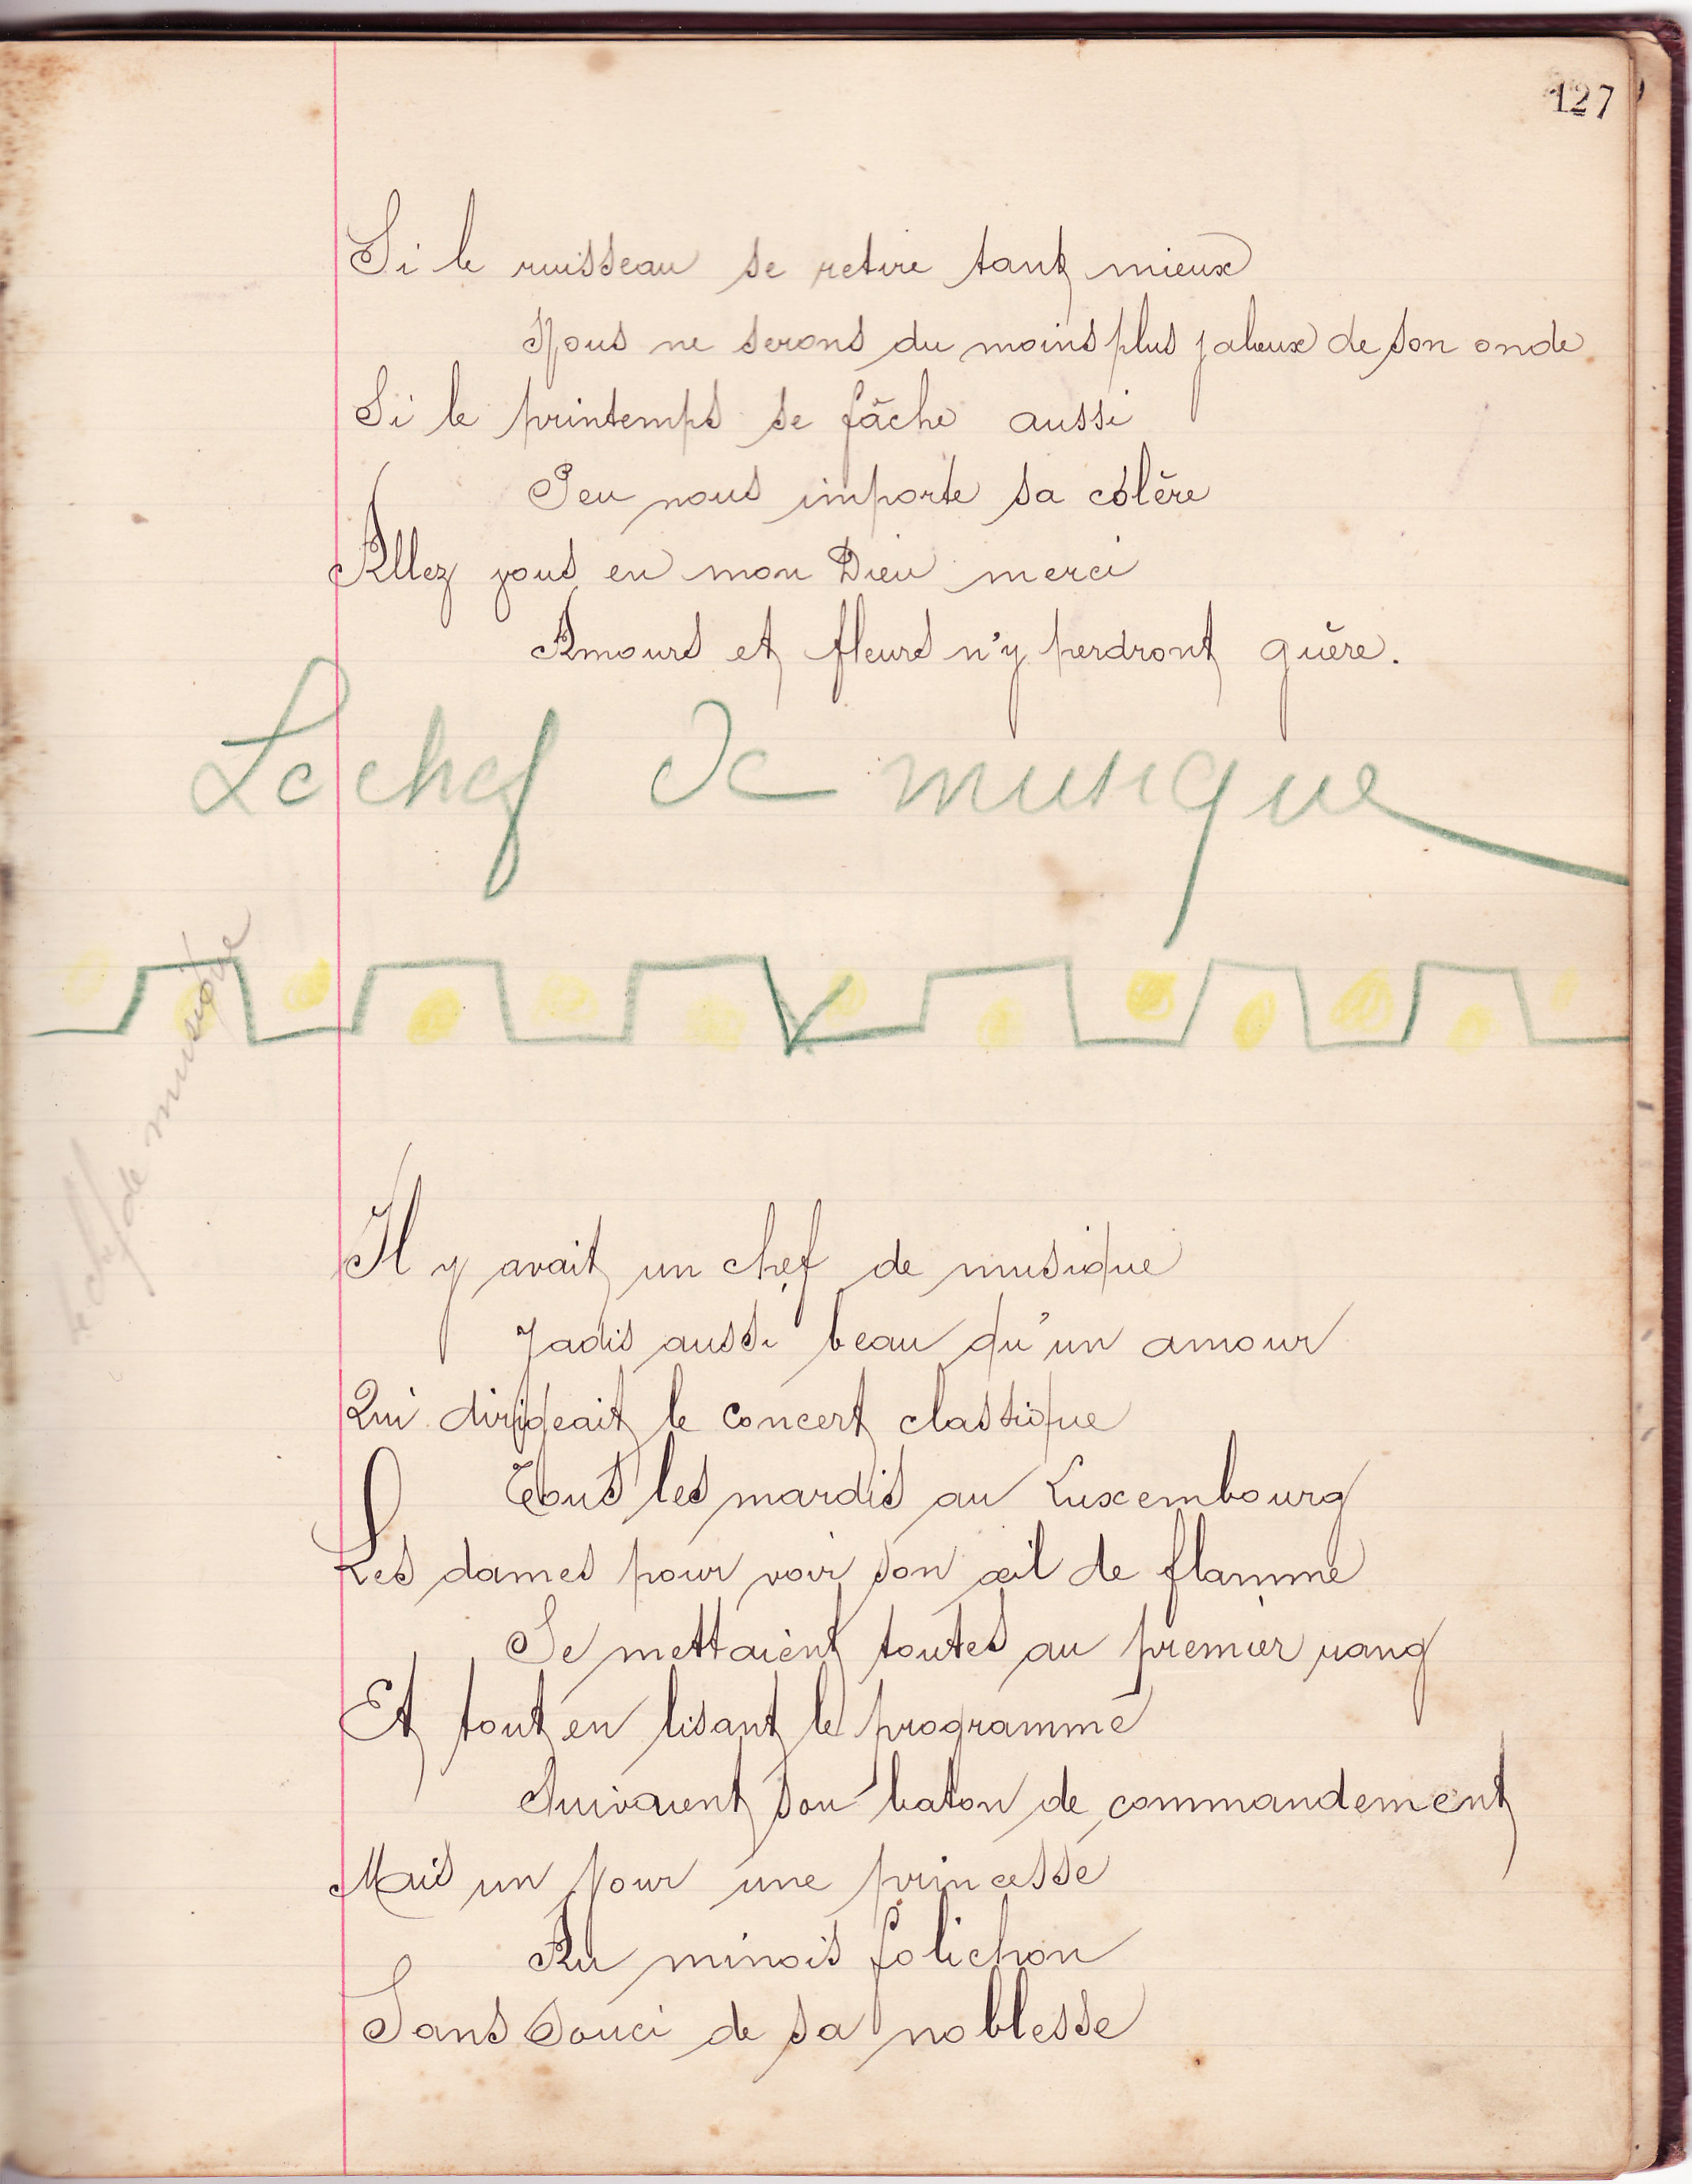 127
Si le ruisseau se retire tant mieux
Nous ne serons du moins plus jaloux de son onde
Si le printemps se fâche aussi
Peu nous importe sa colère
Allez vous en mon Dieu merci
Amours et fleurs n'y perdront guère.
Le chef de musique
le chef de musique
Il y avait un chef de musique
Jadis aussi beau qu'un amour
Qui dirigeait le concert classique
Tous les mardis au Luxembourg
Les dames pour voir son œil de flamme
Se mettaient toutes au premier rang
Et tout en lisant le programme
Suivaient son baton de commandement
Mais un jour une princesse
Au minois folichon
Sans souci de sa noblesse